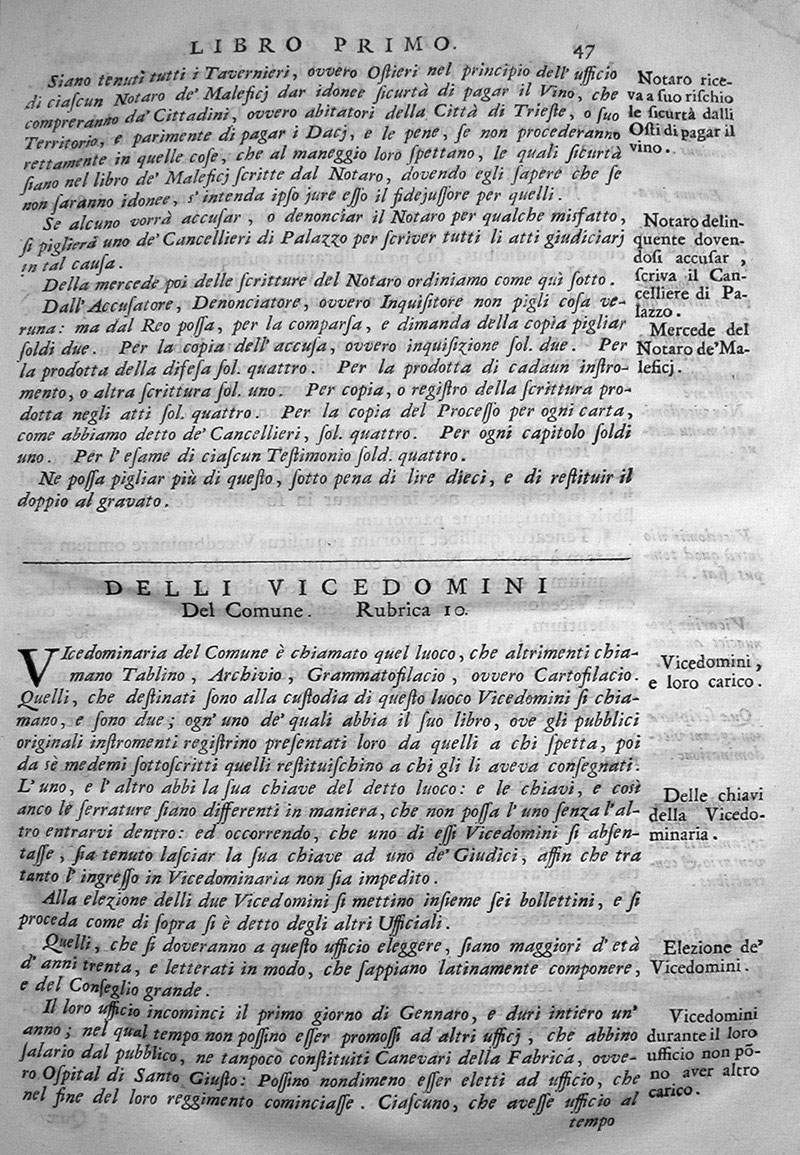 LIBRO PRIMO.
47
Siano tenuti tutti i Tavernieri, ovvero Oſtieri nel principio dell' ufficio
di ciaſcun Notaro de' Maleficj dar idonee ſicurtà di pagar il Vino, che
compreranno da' Cittadini, ovvero abitatori della Città di Trieſte, o ſuo
Territorio, e parimente di pagar i Dacj, e le pene, ſe non procederanno
rettamente in quelle coſe, che al maneggio loro ſpettano, le quali ſicurtà
ſiano nel libro de' Maleficj ſcritte dal Notaro, dovendo egli ſapere che ſe
non ſaranno idonee, s' intenda ipſo jure eſſo il fidejuſſore per quelli.
Se alcuno vorrà accuſar, o denonciar il Notaro per qualche misfatto,
ſi piglierà uno de' Cancellieri di Palazzo per ſcriver tutti li atti giudiciarj
in tal cauſa.
Della mercede poi delle ſcritture del Notaro ordiniamo come quì ſotto.
Dall' Accuſatore, Denonciatore, ovvero Inquiſitore non pigli coſa ve-
runa: ma dal Reo poſſa, per la comparſa, e dimanda della copia pigliar
ſoldi due. Per la copia dell' accuſa, ovvero inquiſizione ſol. due. Per
la prodotta della difeſa ſol. quattro. Per la prodotta di cadaun inſtro-
mento, o altra ſcrittura ſol. uno. Per copia, o regiſtro della ſcrittura pro-
dotta negli atti ſol. quattro. Per la copia del Proceſſo per ogni carta,
come abbiamo detto de' Cancellieri, ſol. quattro. Per ogni capitolo ſoldi
uno. Per l' eſame di ciaſcun Teſtimonio ſold. quattro.
Ne poſſa pigliar più di queſto, ſotto pena di lire dieci, e di reſtituir il
doppio al gravato.
Notaro rice-
va a ſuo riſchio
le ſicurtà dalli
Oſti di pagar il
vino.
Notaro delin-
quente doven-
doſi accuſar,
ſcriva il Can-
celliere di Pa-
lazzo.
Mercede del
Notaro de' Ma-
leficj.
DELLI VICEDOMINI
Del Comune. Rubrica 10.
VIcedominaria del Comune è chiamato quel luoco, che altrimenti chia-
mano Tablino, Archivio, Grammatofilacio, ovvero Cartofilacio.
Quelli, che deſtinati ſono alla cuſtodia di queſto luoco Vicedomini ſi chia-
mano, e ſono due; ogn' uno de' quali abbia il ſuo libro, ove gli pubblici
originali inſtromenti regiſtrino preſentati loro da quelli a chi ſpetta, poi
da sè medemi ſottoſcritti quelli reſtituiſchino a chi gli li aveva conſegnati.
L' uno, e l' altro abbi la ſua chiave del detto luoco: e le chiavi, e così
anco le ſerrature ſiano differenti in maniera, che non poſſa l' uno ſenza l' al-
tro entrarvi dentro: ed occorrendo, che uno di eſſi Vicedomini ſi abſen-
taſſe, ſia tenuto laſciar la ſua chiave ad uno de' Giudici, affin che tra
tanto l' ingreſſo in Vicedominaria non ſia impedito.
Alla elezione delli due Vicedomini ſi mettino inſieme ſei bollettini, e ſi
proceda come di ſopra ſi è detto degli altri Ufficiali.
Quelli, che ſi doveranno a queſto ufficio eleggere, ſiano maggiori d' età
d' anni trenta, e letterati in modo, che ſappiano latinamente componere,
e del Conſeglio grande.
Il loro ufficio incominci il primo giorno di Gennaro, e duri intiero un'
anno; nel qual tempo non poſſino eſſer promoſſi ad altri ufficj, che abbino
ſalario dal pubblico, ne tanpoco conſtituiti Canevari della Fabrica, ovve-
ro Oſpital di Santo Giuſto: Poſſino nondimeno eſſer eletti ad ufficio, che
nel fine del loro reggimento cominciaſſe. Ciaſcuno, che aveſſe ufficio al
tempo
Vicedomini,
e loro carico.
Delle chiavi
della Vicedo-
minaria.
Elezione de'
Vicedomini.
Vicedomini
durante il loro
ufficio non pō-
no aver altro
carico.